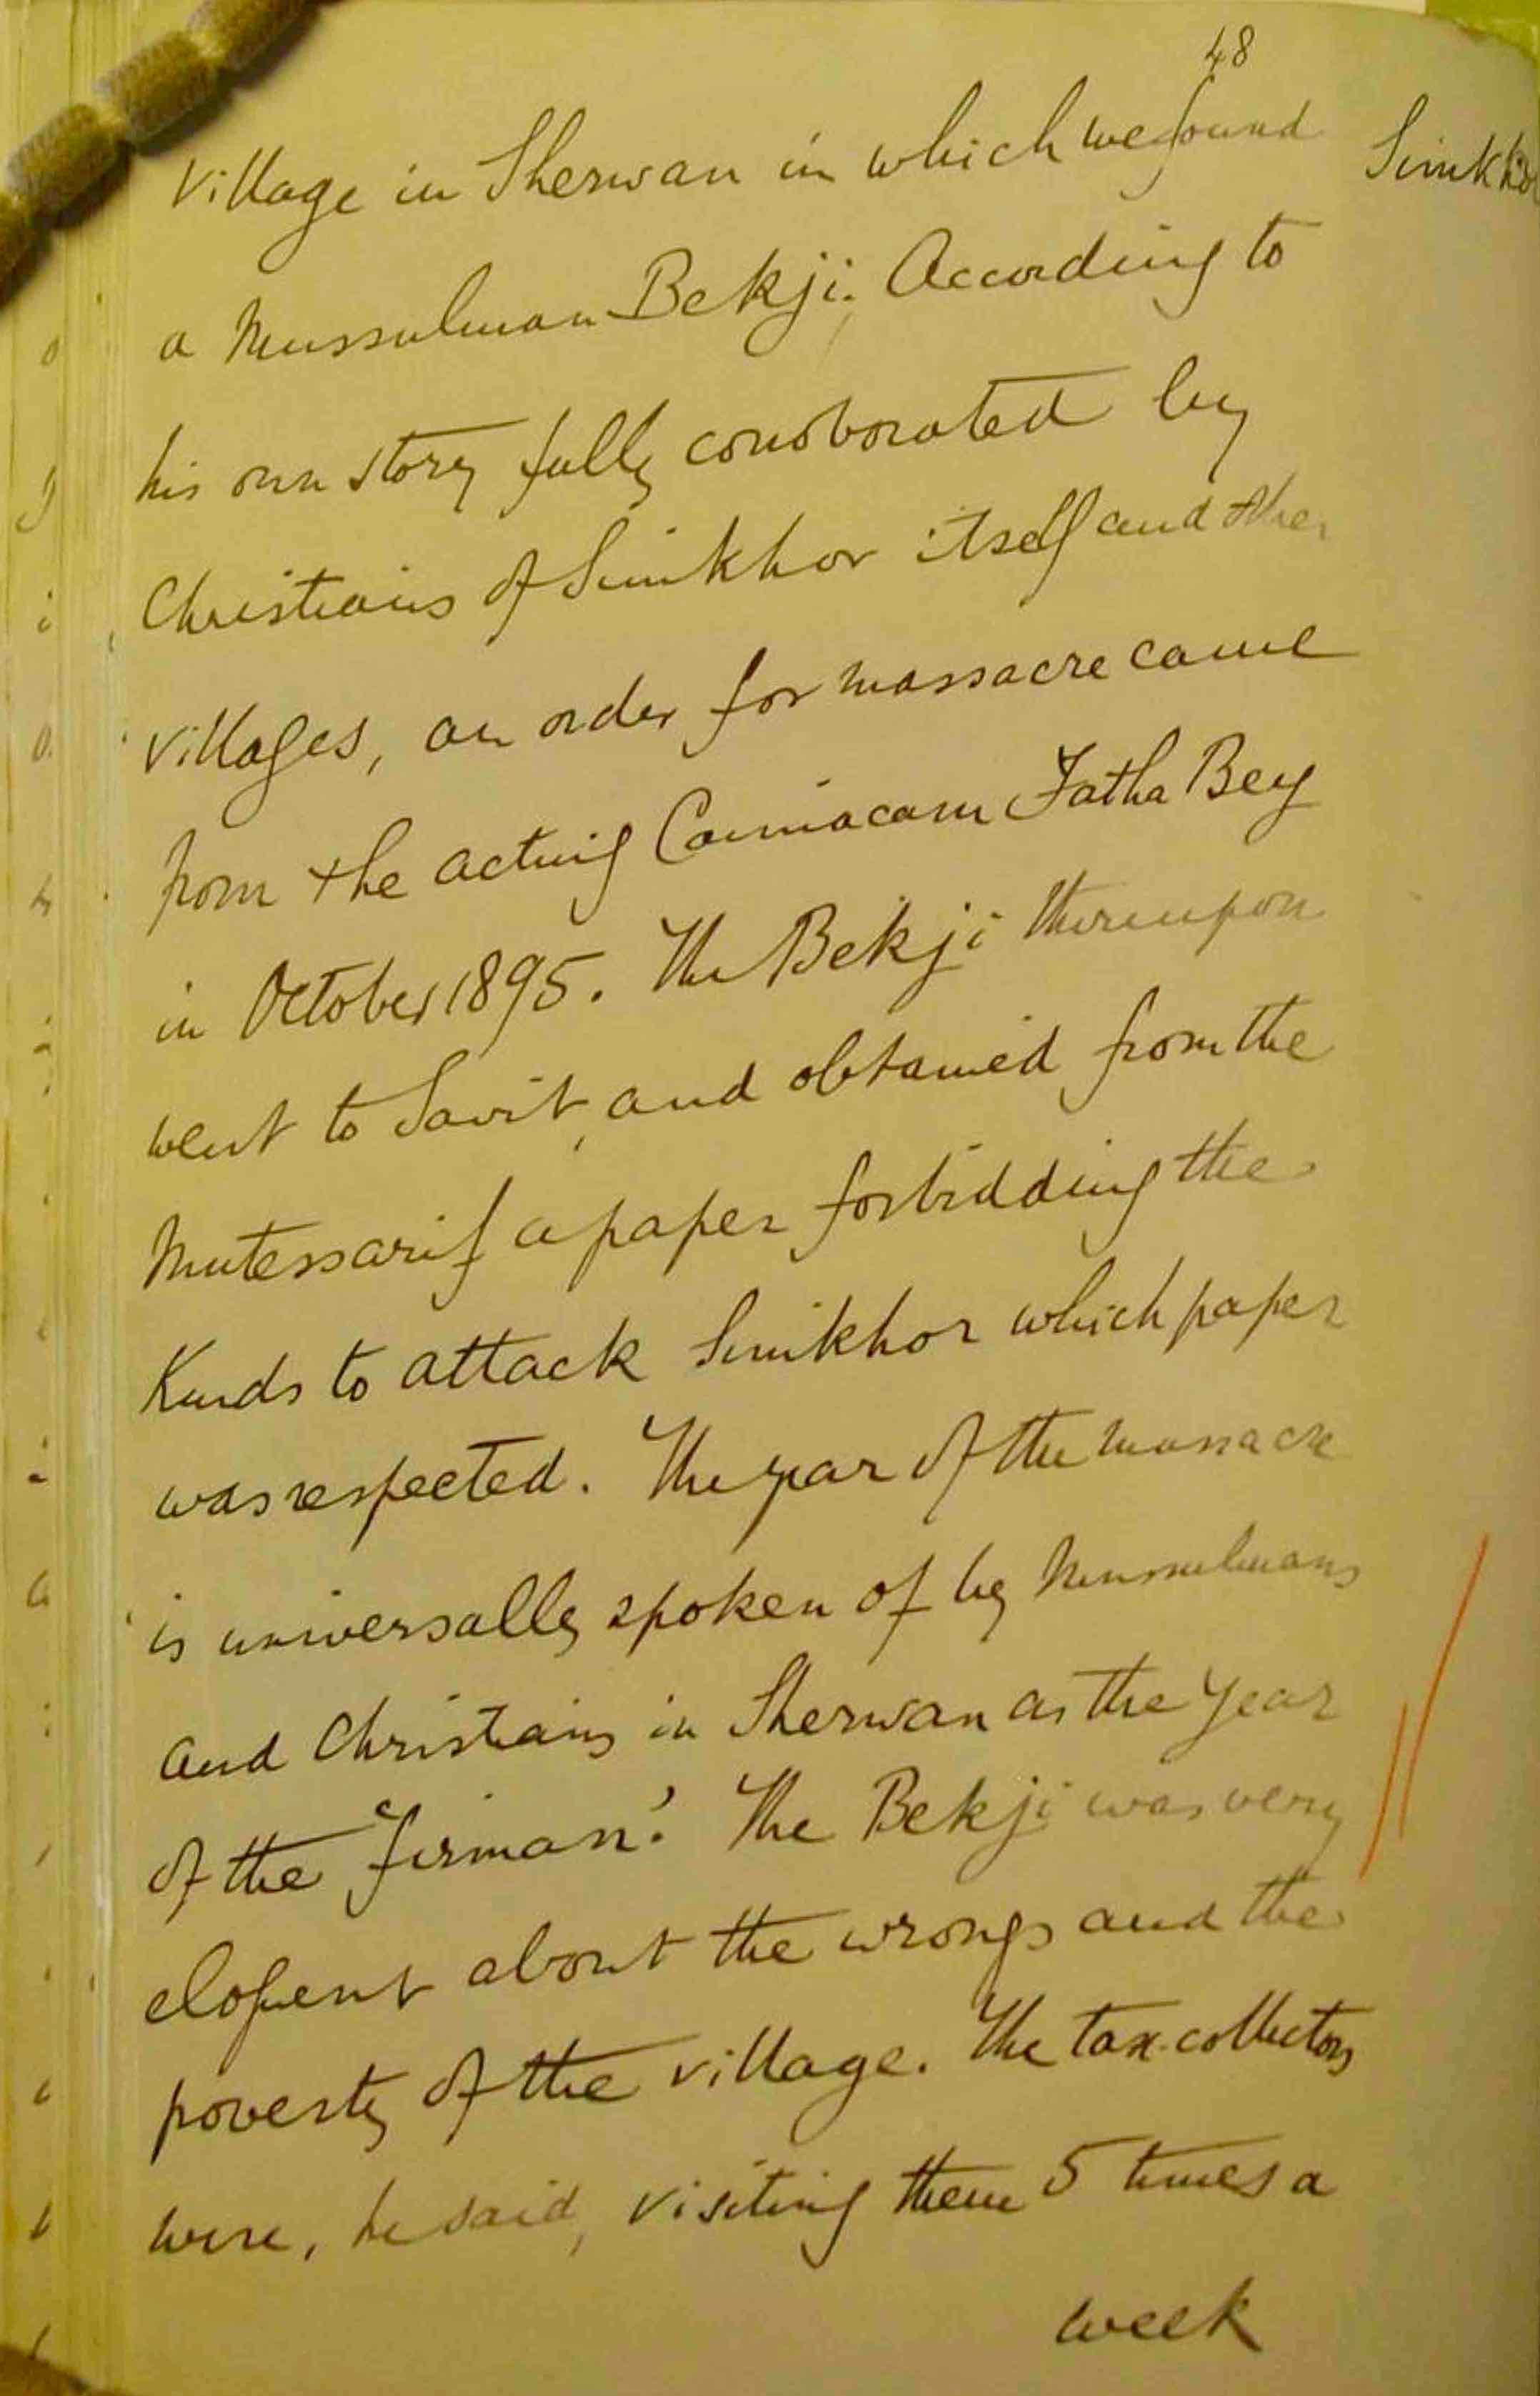 48
Village in Sherwan in which we found
a Mussulman Bekji. According to
his own story fully corroborated by
Christians of Sinikhor itself and other
villages, an order for massacre came
from the acting Caimacam Fatha Bey
in October 1895. The Bekji thereupon
went to Sairt, and obtained from the
Mutessarif a paper forbidding the
Kurds to attack Sinikhor which paper
was respected. The year of the massacre
is universally spoken of by Mussulmans
and Christians in Sherwan as the year
of the "firman". The Bekji was very
eloquent about the wrongs and the
poverty of the village. The tax-collectors
were, he said, visiting them 5 times a
week